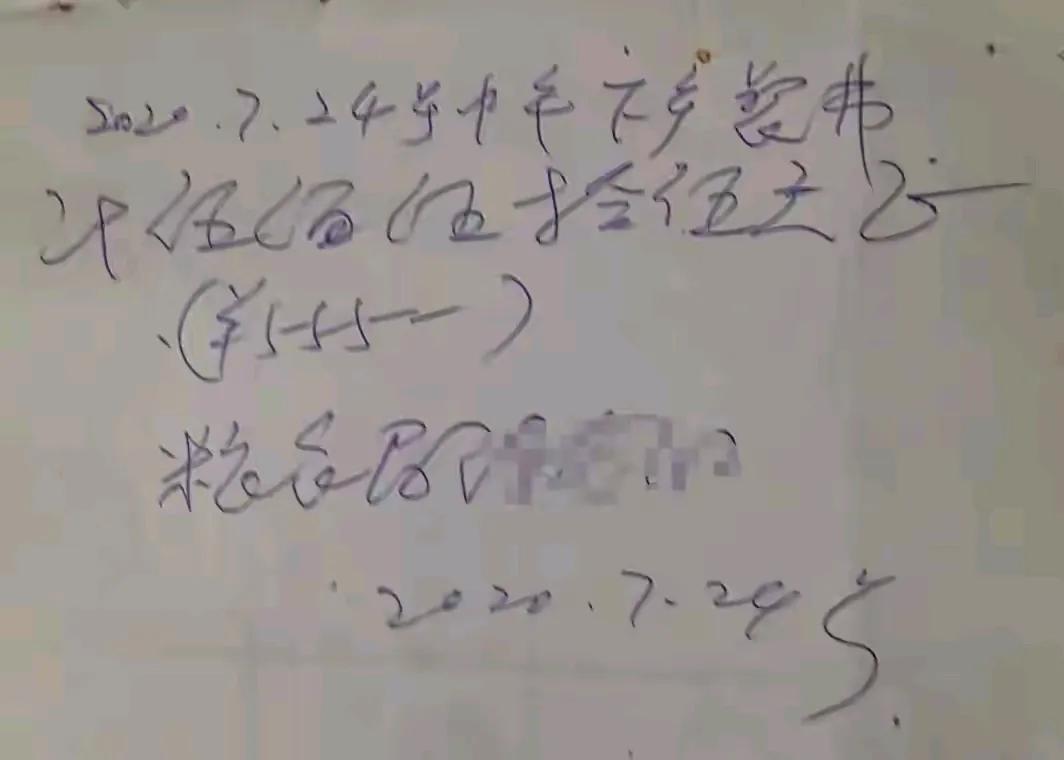 2020.7.24号中午下乡餐费
计伍佰伍拾伍元正
(¥555—)
粮食部门
2020.7.24号